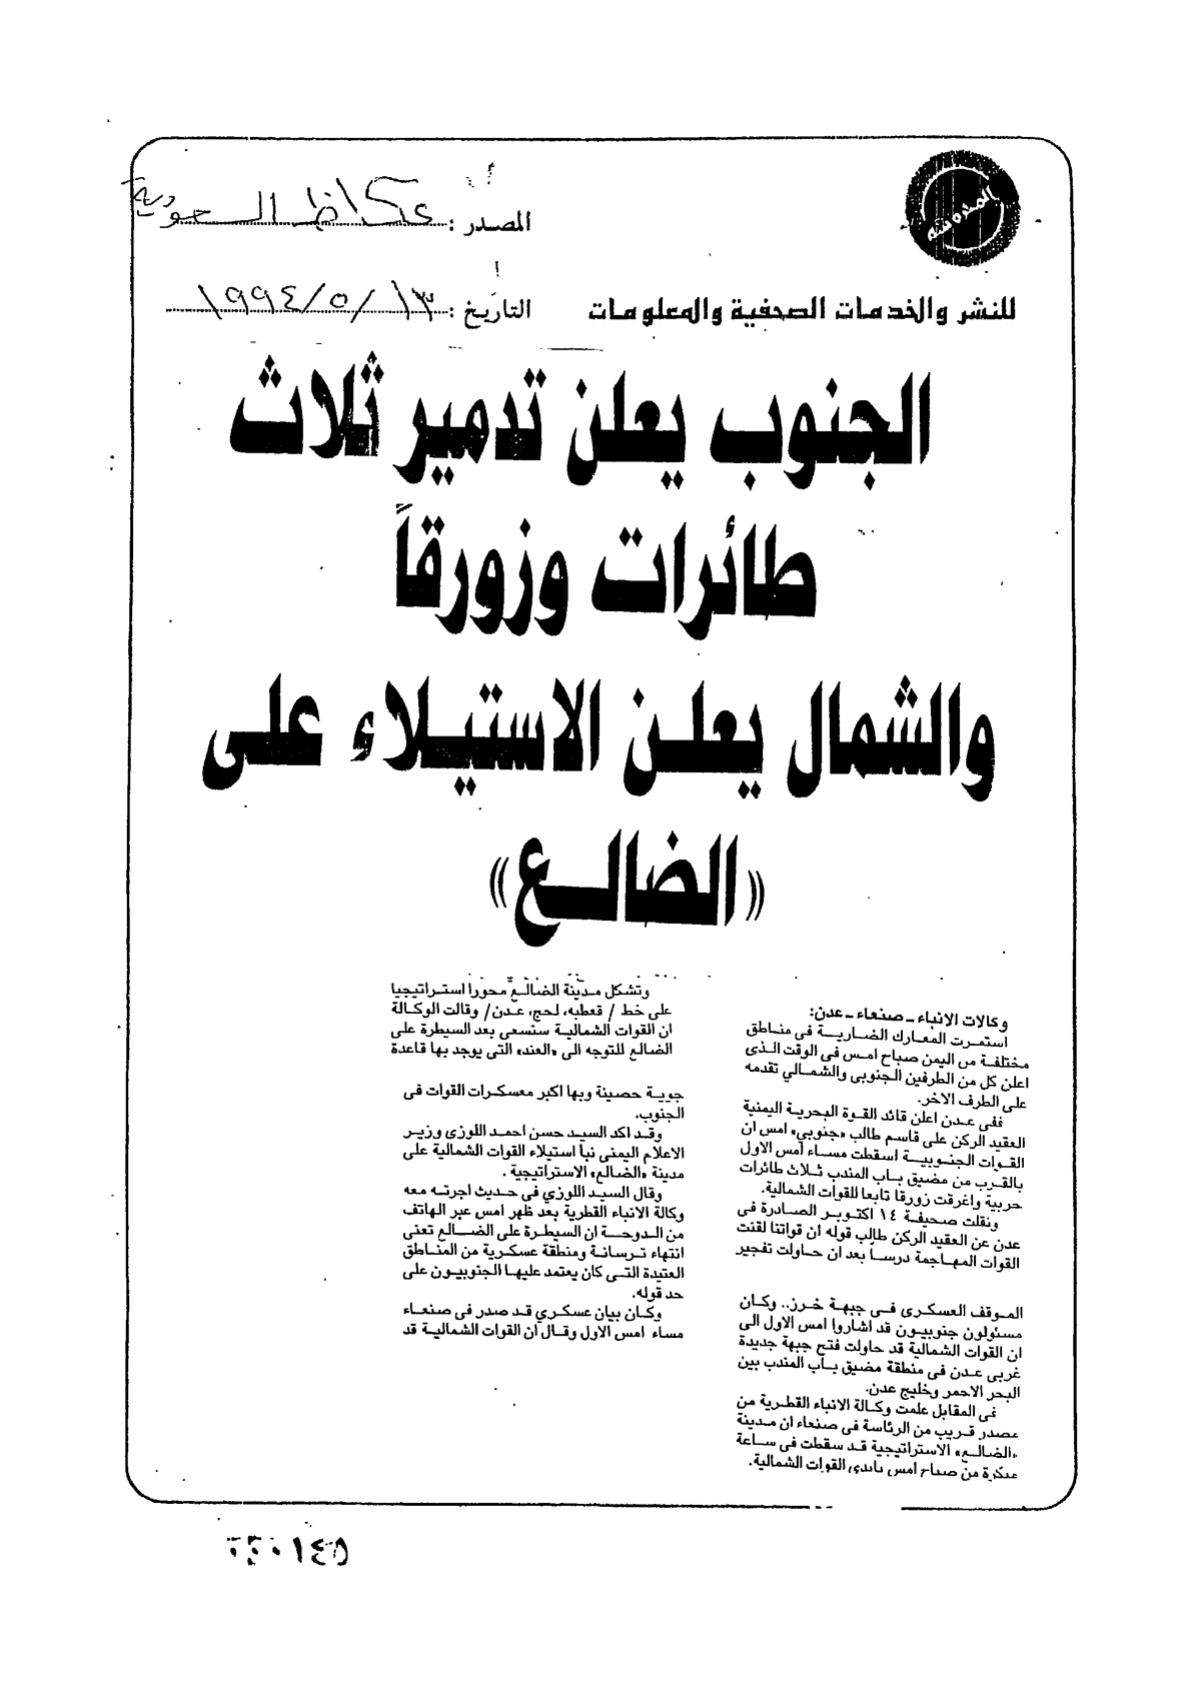 المصدر : عكاظ السعودية
للنشر والخدمات الصحفية والمعلومات
التاريخ : ١٣ / ٥ / ١٩٩٤
الجنوب يعلن تدمير ثلاث
طائرات وزورقاً
والشمال يعلن الاستيلاء على
«الضالع»
وكالات الانباء - صنعاء - عدن:
استمرت المعارك الضارية فى مناطق
مختلفة من اليمن صباح امس فى الوقت الذى
اعلن كل من الطرفين الجنوبى والشمالي تقدمه
على الطرف الاخر.
ففى عدن اعلن قائد القوة البحرية اليمنية
العقيد الركن على قاسم طالب «جنوبي» امس ان
القوات الجنوبية اسقطت مساء امس الاول
بالقرب من مضيق باب المندب ثلاث طائرات
حربية واغرقت زورقا تابعا للقوات الشمالية.
ونقلت صحيفة ١٤ اكتوبر الصادرة فى
عدن عن العقيد الركن طالب قوله ان قواتنا لقنت
القوات المهاجمة درساً بعد ان حاولت تفجير
الموقف العسكرى فى جبهة خرز.. وكان
مسئولون جنوبيون قد اشاروا امس الاول الى
ان القوات الشمالية قد حاولت فتح جبهة جديدة
غربى عدن فى منطقة مضيق باب المندب بين
البحر الاحمر وخليج عدن.
فى المقابل علمت وكالة الانباء القطرية من
مصدر قريب من الرئاسة فى صنعاء ان مدينة
«الضالع» الاستراتيجية قد سقطت فى ساعة
مبكرة من صباح امس بايدى القوات الشمالية.
وتشكل مدينة الضالع محورا استراتيجيا
على خط / قعطبه، لحج، عدن/ وقالت الوكالة
ان القوات الشمالية ستسعى بعد السيطرة على
الضالع للتوجه الى «العند» التى يوجد بها قاعدة
جوية حصينة وبها اكبر معسكرات القوات فى
الجنوب.
وقد اكد السيد حسن احمد اللوزى وزير
الاعلام اليمنى نبأ استيلاء القوات الشمالية على
مدينة «الضالع» الاستراتيجية .
وقال السيد اللوزي فى حديث اجرته معه
وكالة الانباء القطرية بعد ظهر امس عبر الهاتف
من الدوحة ان السيطرة على الضالع تعنى
انتهاء ترسانة ومنطقة عسكرية من المناطق
العتيدة التى كان يعتمد عليها الجنوبيون على
حد قوله.
وكان بيان عسكري قد صدر فى صنعاء
مساء امس الاول وقال ان القوات الشمالية قد